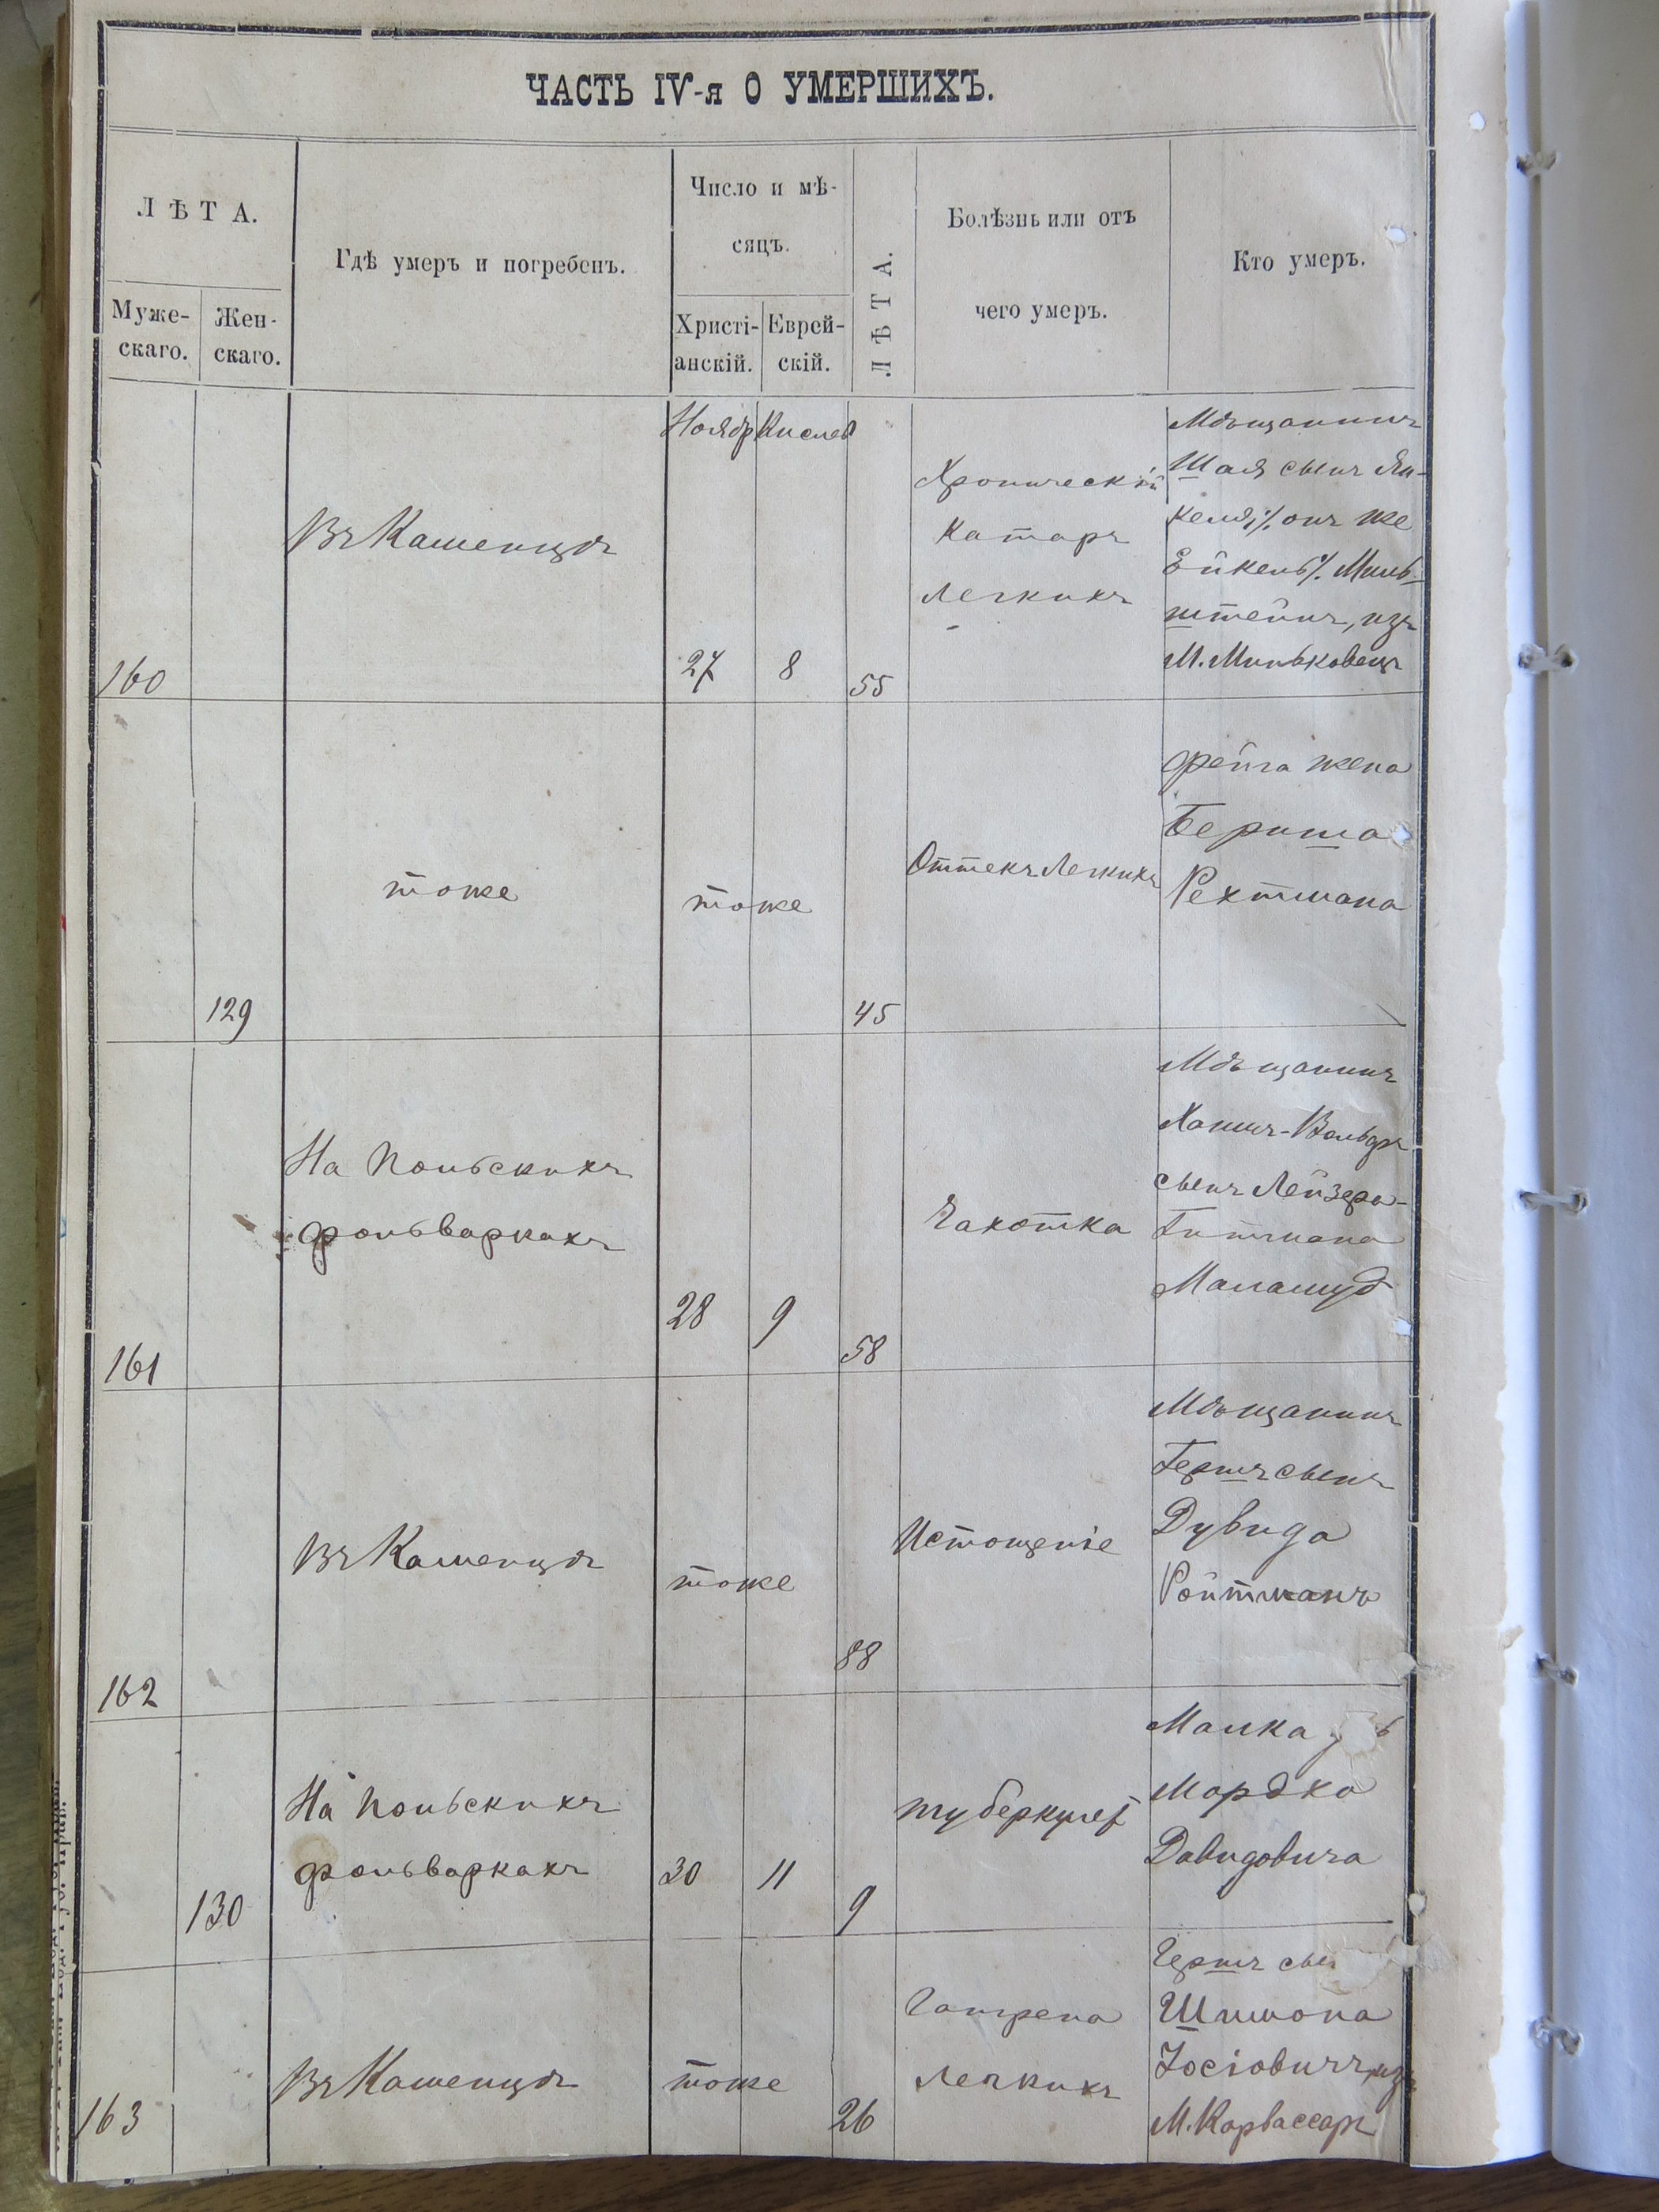 ЧАСТЬ IV-я О УМЕРШИХЪ.
ЛѢТА.
Муже-
скаго.
Жен-
скаго.
Гдѣ умеръ и погребенъ.
Число и мѣ-
сяцъ.
Христі-
анскій.
Еврей-
скій.
ЛѢТА.
Болѣзнь или отъ
чего умеръ.
Кто умеръ.
160
Въ Каменцѣ
Ноябр Кислев
27 8
55
Хроническій
Катаръ
легкихъ
Мѣщанинъ
Шая сынъ Ян-
келя, онъ же
Миль-
штейнъ, изъ
М. Миньковецъ
129
тоже
тоже
45
Оттекъ Легкихъ
Фейга жена
Бериша
Рехтмана
161
На Польскихъ
фольваркахъ
28 9
58
Чахотка
Мѣщанинъ
Хаимъ-Вольфъ
сынъ Лейзера-
Гитмана
Маламуд
162
Въ Каменцѣ
тоже
88
Истощеніе
Мѣщанинъ
Гершъ сынъ
Дувида
Ройтманъ
130
На Польскихъ
фольваркахъ
30 11
9
туберкулез
Малка
Мордка
Давидовича
163
Въ Каменцѣ
тоже
26
Гангрена
легкихъ
Гершъ сын
Шимона
Іосіовичъ, из
М. Карвассар